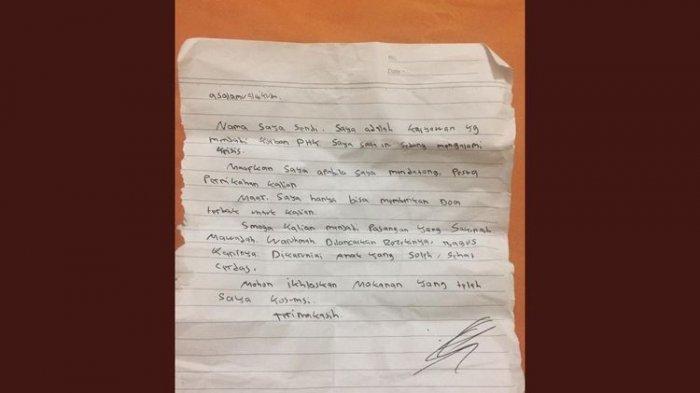 No :
Date :
asalamualaikum.
Nama saya Sendi. Saya adalah karyawan yg
menjadi korban PHK saya saat ini sedang mengalami
krisis.
Maafkan saya apabila saya mendatangi Pesta
Pernikahan kalian
Maaf. Saya hanya bisa memberikan Doa
terbaik untuk kalian
Semoga kalian menjadi Pasangan yang Sakinah
Mawadah Warohmah Dilancarkan Rozekinya, bagus
Karirnya Dikaruniai anak yang soleh, sehat
cerdas.
Mohon ikhlaskan Makanan yang telah
saya kosumsi.
Terimakasih